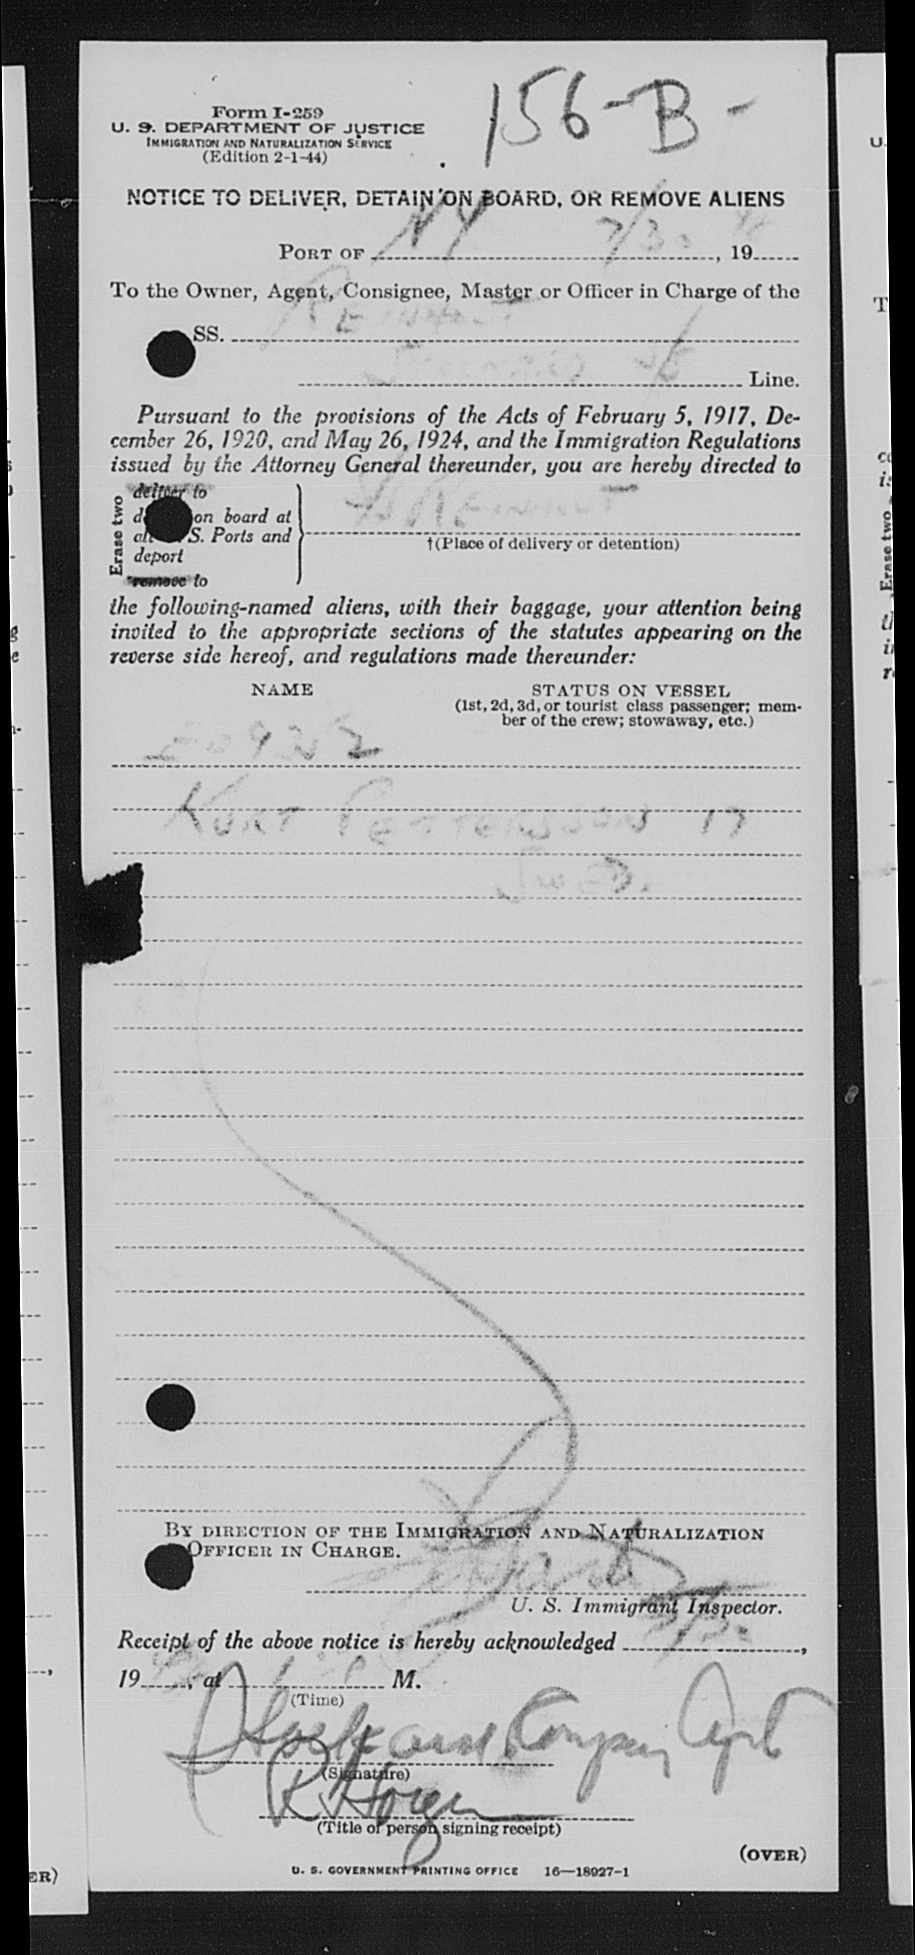 156-B-
Form I-259
U. S. DEPARTMENT OF JUSTICE
IMMIGRATION AND NATURALIZATION SERVICE
(Edition 2-1-44)
NOTICE TO DELIVER, DETAIN ON BOARD, OR REMOVE ALIENS
PORT OF NY 7/30, 19
To the Owner, Agent, Consignee, Master or Officer in Charge of the
SS. REINHOLT
Line.
Pursuant to the provisions of the Acts of February 5, 1917, De-
cember 26, 1920, and May 26, 1924, and the Immigration Regulations
issued by the Attorney General thereunder, you are hereby directed to
Erase two
deliver to
on board at
S. Ports and
deport
remove to
REINHOLT
†(Place of delivery or detention)
the following-named aliens, with their baggage, your attention being
invited to the appropriate sections of the statutes appearing on the
reverse side hereof, and regulations made thereunder:
NAME STATUS ON VESSEL
(1st, 2d, 3d, or tourist class passenger; mem-
ber of the crew; stowaway, etc.)
KURT PETTERSSON 17
SWED.
BY DIRECTION OF THE IMMIGRATION AND NATURALIZATION
OFFICER IN CHARGE.
U. S. Immigrant Inspector.
Receipt of the above notice is hereby acknowledged ,
19 , at M.
(Time)
and Company Agt
(Signature)
(Title of person signing receipt)
(OVER)
U. S. GOVERNMENT PRINTING OFFICE 16—18927-1